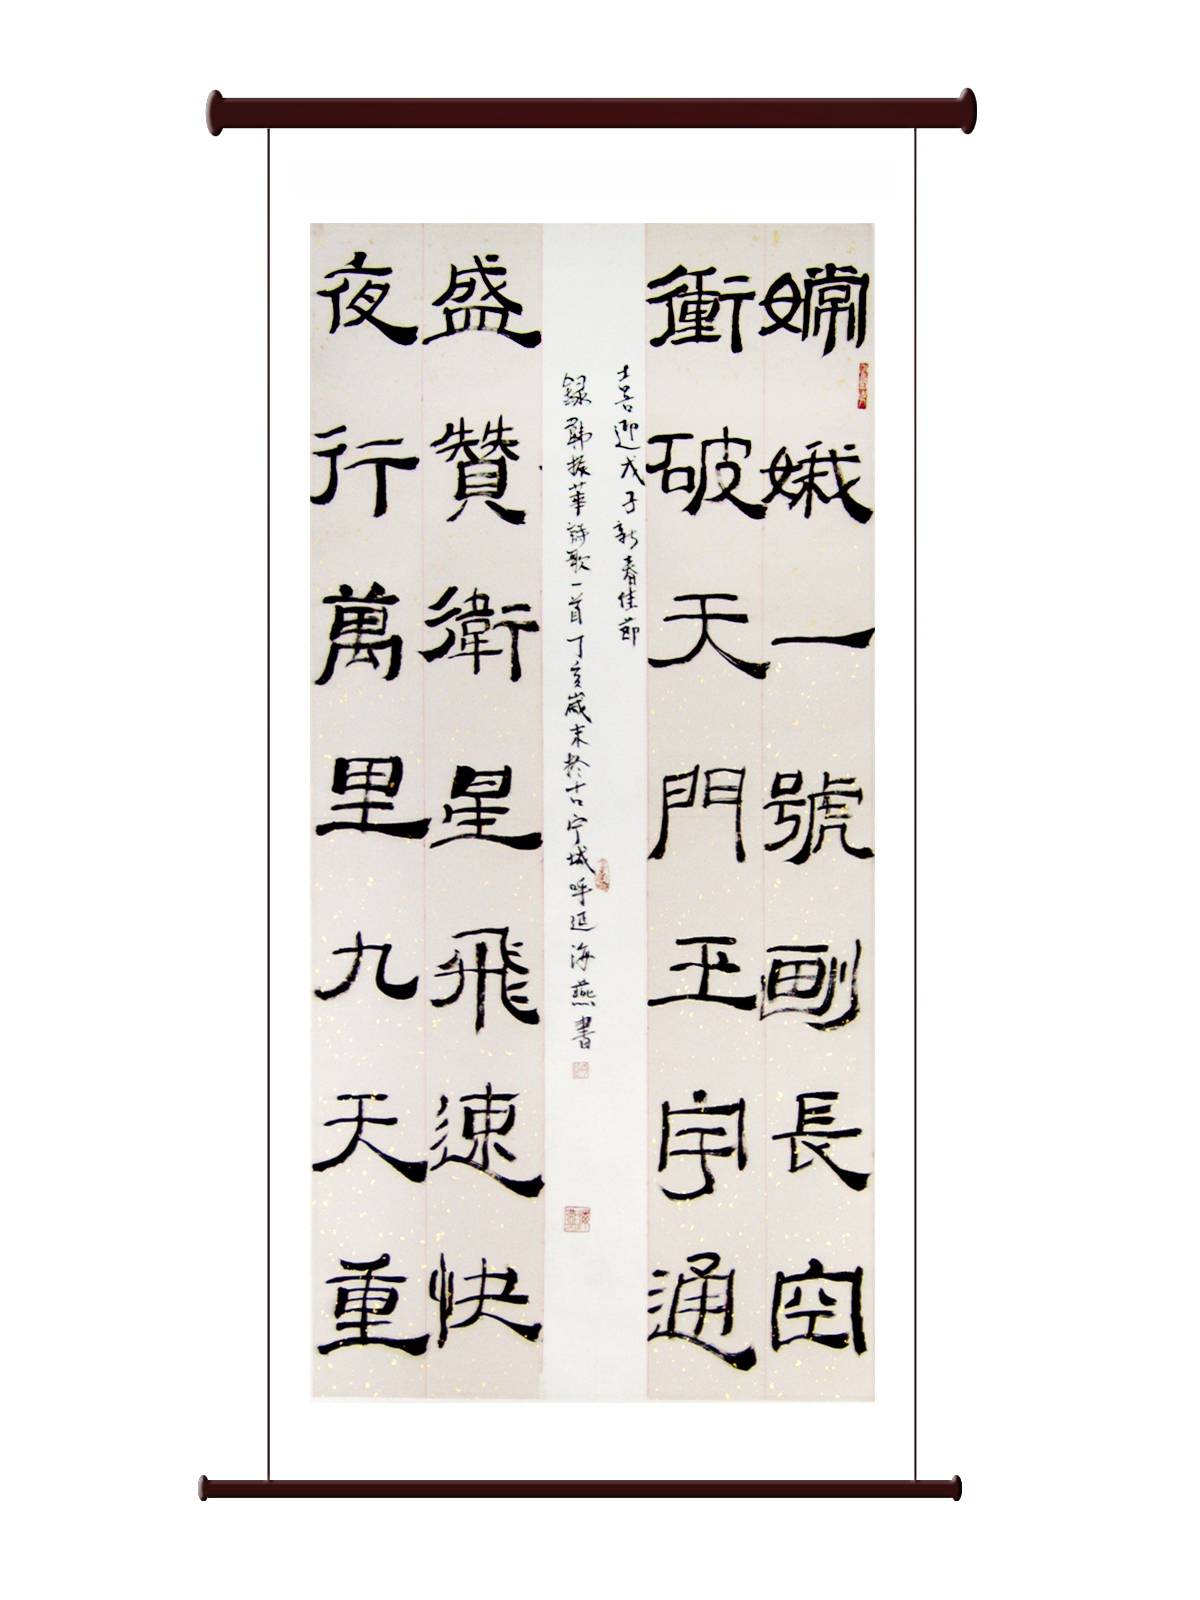 嫦娥一號劃長空
衝破天門玉宇通
喜迎戊子新春佳節
録振華詩歌一首丁亥歲末於古宁城呼延海燕書
盛贊衛星飛速快
夜行萬里九天重